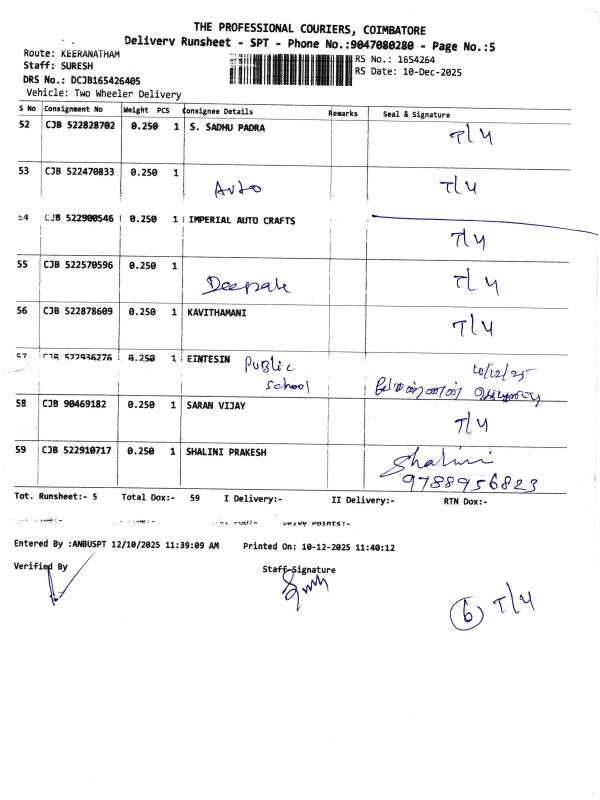 THE PROFESSIONAL COURIERS, COIMBATORE
Delivery Runsheet - SPT - Phone No.:9047080280 - Page No.:5
Route: KEERANATHAM
RS No.: 1654264
Staff: SURESH
RS Date: 10-Dec-2025
DRS No.: DCJB165426405
Vehicle: Two Wheeler Delivery
S No Consignment No Weight PCS Consignee Details Remarks Seal & Signature
52 CJB 522828702 0.250 1 S. SADHU PADRA T/4
53 CJB 522470833 0.250 1 Auto T/4
54 CJB 522900546 0.250 1 IMPERIAL AUTO CRAFTS T/4
55 CJB 522570596 0.250 1 Deepak T/4
56 CJB 522878609 0.250 1 KAVITHAMANI T/4
57 CJB 522936276 0.250 1 EINTESIN Public School 10/12/25
58 CJB 90469182 0.250 1 SARAN VIJAY T/4
59 CJB 522910717 0.250 1 SHALINI PRAKESH Shalini
9788956823
Tot. Runsheet:- 5 Total Dox:- 59 I Delivery:- II Delivery:- RTN Dox:-
Entered By :ANBUSPT 12/10/2025 11:39:09 AM Printed On: 10-12-2025 11:40:12
Verified By Staff Signature
6 T/4